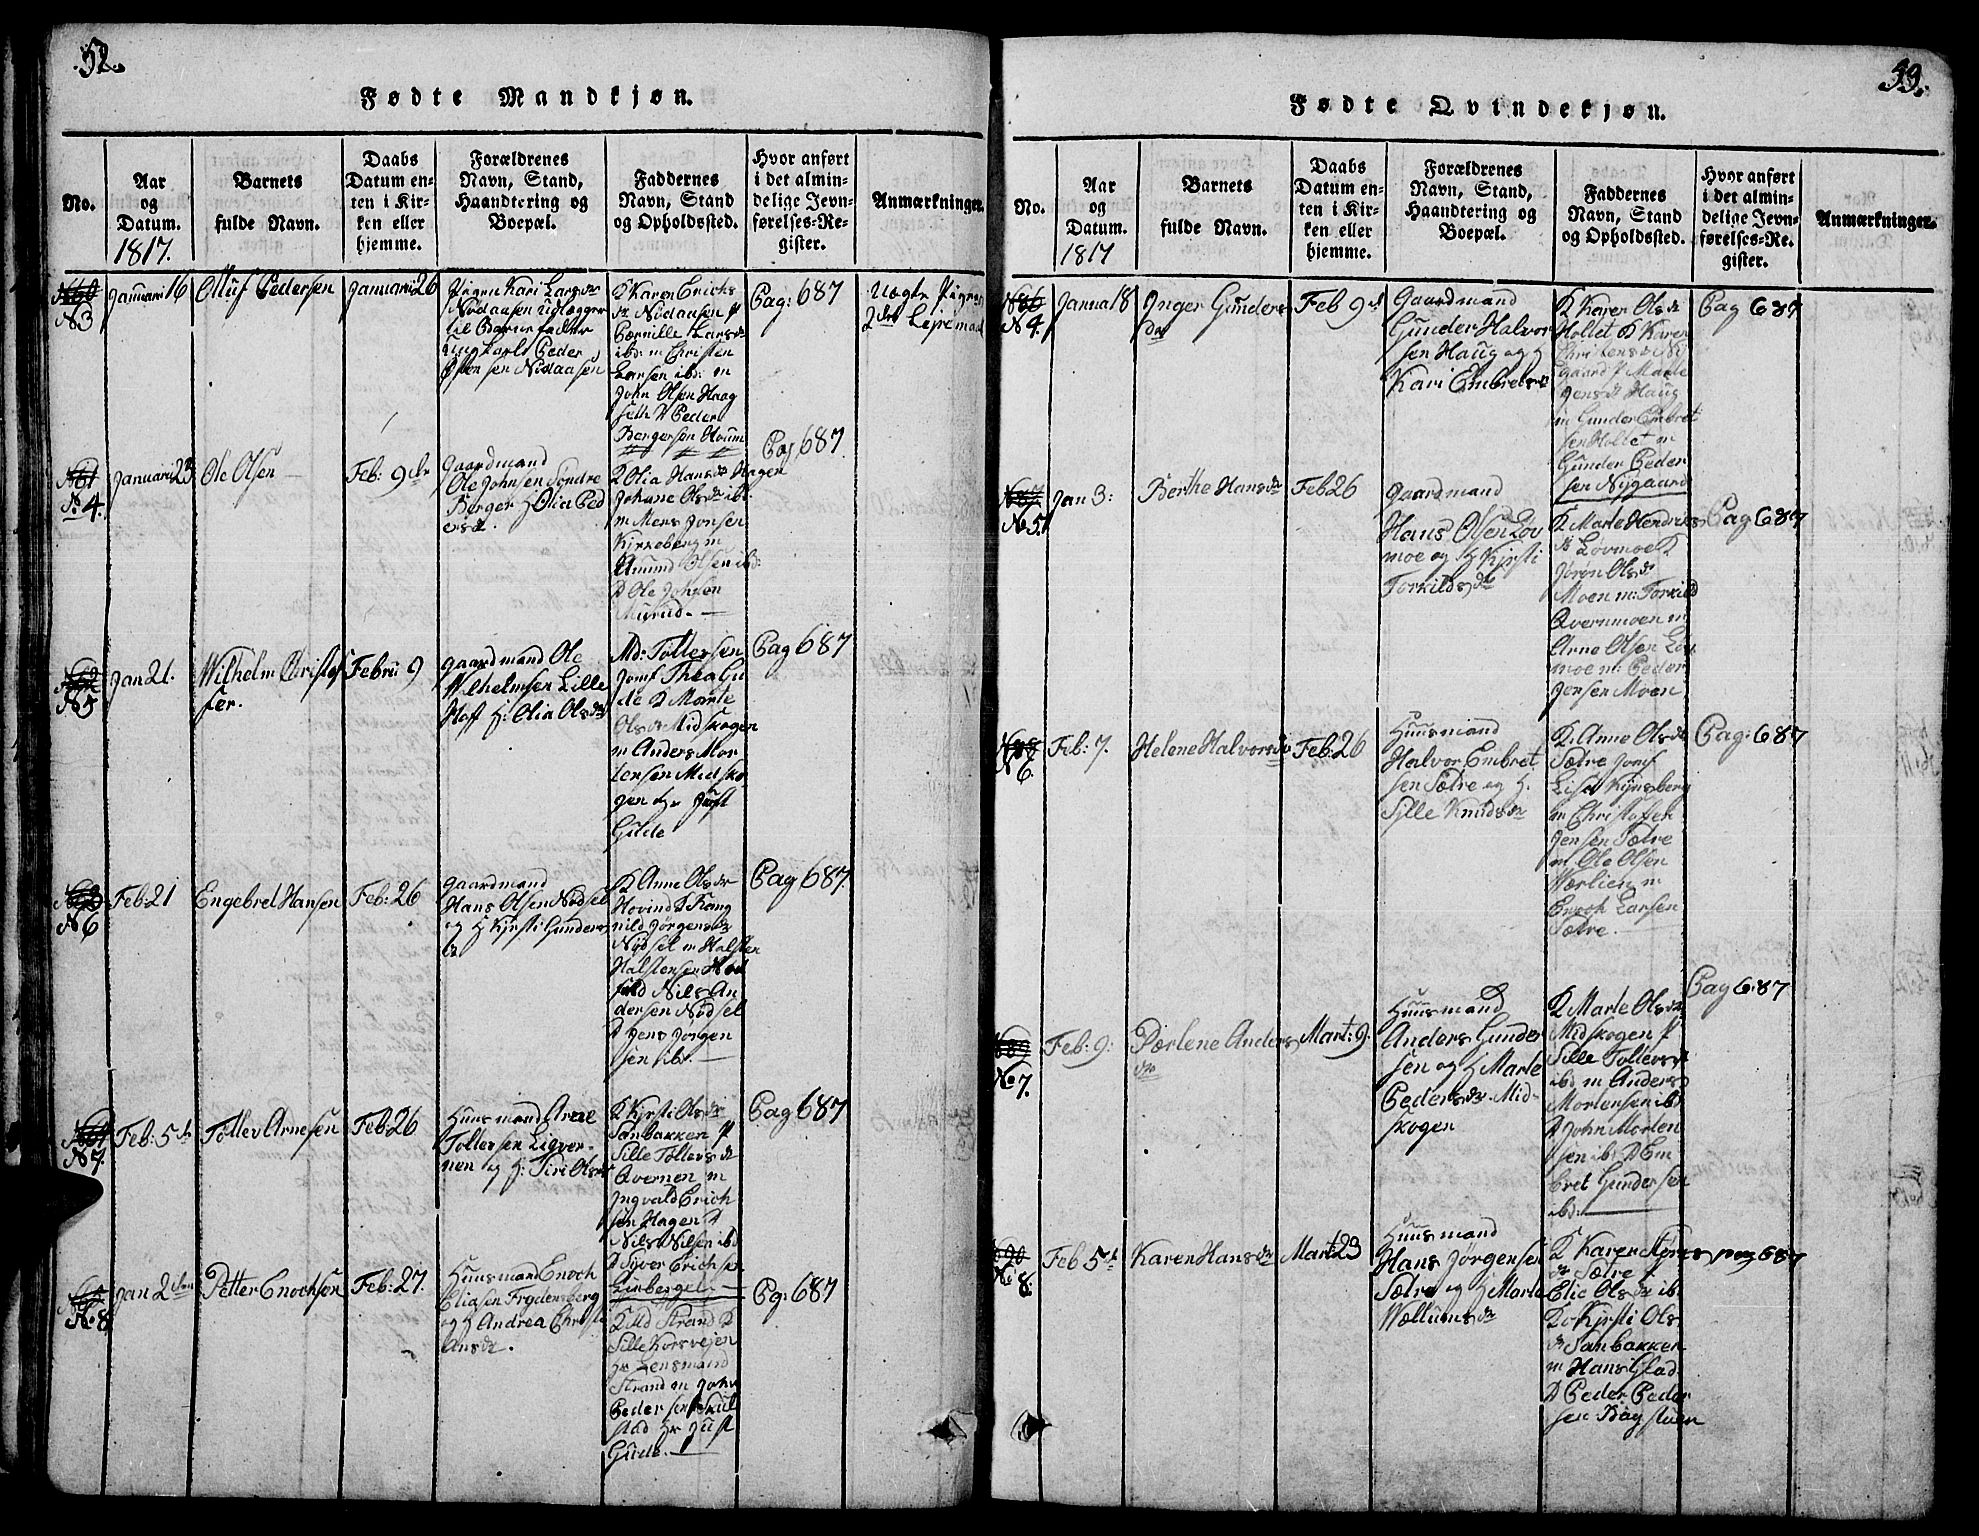 52.
Fødte Mandkjøn.
No.
Aar
og
Datum.
1817.
Barnets
fulde Navn.
Daabs
Datum en-
ten i Kir-
ken eller
hjemme.
Forældrenes
Navn, Stand,
Haandtering og
Boepæl.
Faddernes
Navn, Stand
og Opholdssted.
Hvor anført
i det almin-
delige Jevn-
førelses-Re-
gister.
Anmærkninger.
N3
Januari 16
Oluf Pedersen
Januari 26
Pigen Kari Larsdr
Nødaasen udlægger
til Barnefader
Ungkarl Peder
Østensen Nidaasen
K Karen Erichs
dr Nidaasen P
Pernille Larsdr
ibd: m Christen
Larsen ibd: m
John Olsen Haag
seth D Peder
Bergersen Houm
Pag: 687
Uægte Pigens
2det Lejermaal
No 4.
Januari 23
Ole Olsen
Feb: 9de
Gaardmand
Ole Johnsen Søndre
Berger H Olia Ped
ersdr.
K Olia Hansdr Hagen
Johane Olsdr ibd:
m Mens Jonsen
Kirkeberg m
Amund Olsen ibd:
D Ole Johnsen
Pag 687.
N5
Jan 21.
Wilhelm Christof
fer.
Februi 9
Gaardmand Ole
Wilhelmsen Lille
Hoff H: Olia Olsdr
Md: Tollersen
Jomf Thea Gu
de D Marte
Olsdr Midskogen
m Anders Mor
tensen Midsko
gen og Hr Just
Gude
Pag 687
N6
Feb: 21
Engebret Hansen
Feb: 26
Gaardmand
Hans Olsen Nødsel
og H Kirsti Gunders
dr
K Anne Olsdr
Hovind D Rang
nild Jørgensdr
Nødsel m Halsten
Halstensen
Nils An
dersen Nødsel
D Jens Jørgen
sen ibd.
Pag 687.
N7.
Feb: 5te
Tollev Arnesen
Feb: 26
Huusmand Arne
Tollersen Liqver-
nen og H: Siri Olsdr
K Kirsti Olsdr
Sanbakken P
Sille Tollersdr
Qvernen m
Ingvald Erich
sen Hagen D
Nils Nilsen ibd
D Syver Erichsen
Pag 687
No 8
Jan 2den
Petter Enochsen
Feb: 27.
Huusmand Enoch
Eliasen Frydensberg
og H Andrea Christi
ansdr.
K Md Strand D
Sille Korsvejen
Hr Lensmand
Strand m John
Pedersen Skul
stad Hr Just
Gude.
Pg: 687
53.
Fødte Qvindekjøn.
No.
Aar
og
Datum.
1817
Barnets
fulde Navn.
Daabs
Datum en-
ten i Kir-
ken eller
hjemme.
Forældrenes
Navn, Stand,
Haandtering og
Boepæl.
Faddernes
Navn, Stand
og Opholdssted.
Hvor anført
i det almin-
delige Jevn-
førelses-Re-
gister.
Anmærkninger.
N 4.
Janua 18
Inger Gunders
dr
Feb 9de
Gaardmand
Gunder Halvor
sen Haug og H
Kari Embretsdr
K Karen Olsdr
Holtet D Karen
Christensdr Ny
gaard P Marte
Jensdr Haug
m Gunder Embret
sen Holtet m
Gunder Peder
sen Nygaard
Pag 687
No 5
Jan 3:
Berthe Hansdr
Feb 26
Gaardmand
Hans Olsen Løv
moe og H Kirsti
Torkildsdr
K Marte Hendrics
dr Løvmoe K
Jørøn Olsdr
Moen m: Torkild
Qvernmoen m
Arne Olsen Løv
moe m: Peder
Jensen Moen
Pag 687
N 6.
Feb: 7.
Helene Halvorsdr
Feb: 26
Huusmand
Halvor Embret
sen Sætre og H.
Sille Knudsdr
K: Anne Olsdr
Sætre Jomf
Lise Kynsberg
m Christoffer
Jensen Sætre
m Ole Olsen
Wærlien m
Enoch Larsen
Sætre.
Pag: 687
No 7.
Feb: 9:
Pærlene Anders
dr
Mart: 9.
Huusmand
Anders Gunder
sen og H Marte
Pedersdr Mid-
skogen
K Marte Olsdr
Midskogen P
Sille Tollersdr
ibd m Anders
Mortensen ibd
D John Morten
sen ibd D Em
bret Gundersen
ibd:
Pag 687
No 8.
Feb 5te
Karen Hansdr
Mart: 23
Huusmand
Hans Jørgensen
Sætre og H Marte
Wællumsdr
K Karen
dr Sætre P
Elie Olsdr ibd
K Kirsti Ols
dr Sanbakken
m Hans Glad
D Peder Peder
sen Bagstuen
pag 687